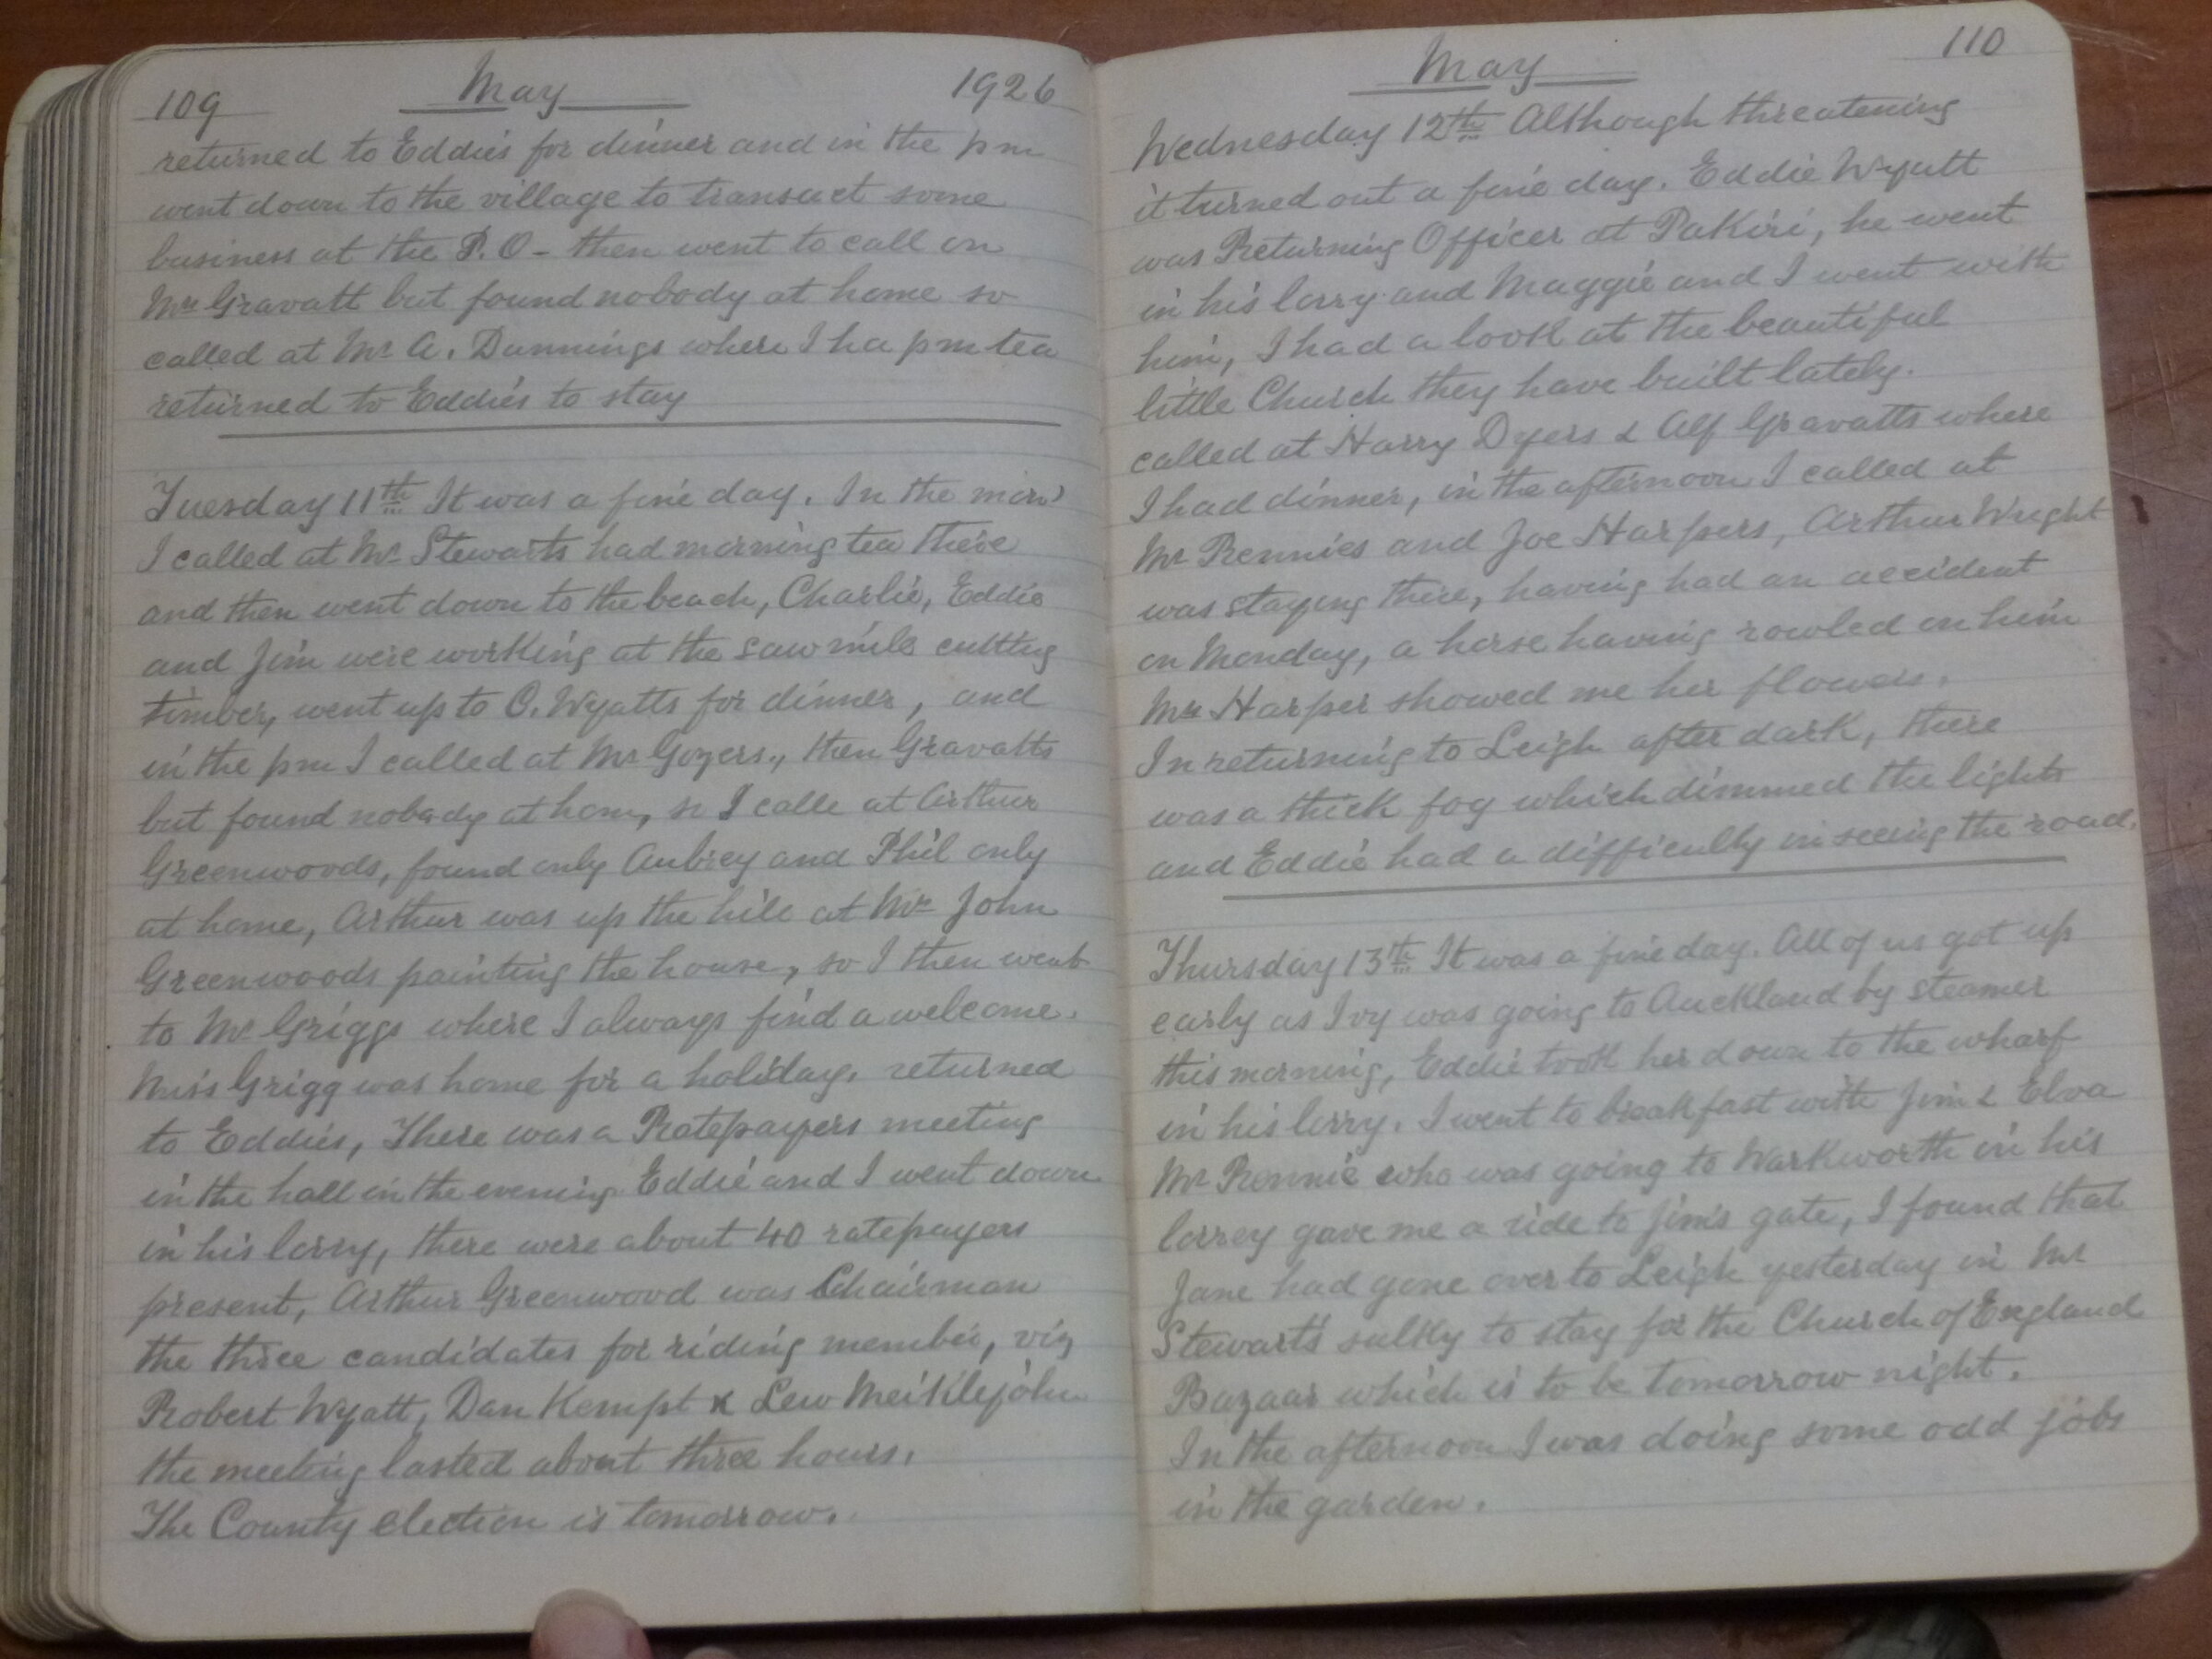 109 May 1926
returned to Eddies for dinner and in the pm
went down to the village to transact some
business at the P.O - then went to call on
Mrs Gravatt but found nobody at home so
called at Mr A. Dunnings where I ha pm tea
returned to Eddies to stay
Tuesday 11th It was a fine day. In the morn'
I called at Mr Stewarts had morning tea there
and then went down to the beach, Charlie, Eddie
and Jim were working at the saw mill cutting
timber, went up to O. Wyatts for dinner, and
in the pm I called at Mr Gozers., then Gravatts
but found nobody at hom, so I calle at Arthur
Greenwoods, found only Aubrey and Phil only
at home, Arthur was up the hill at Mrs John
Greenwoods painting the house, so I then went
to Mr Griggs where I always find a welcome.
Miss Grigg was home for a holiday. returned
to Eddies, There was a Ratepayers meeting
in the hall in the evening Eddie and I went down
in his lorry, there were about 40 ratepayers
present, Arthur Greenwood was Chairman
the three candidates for riding member, viz
Robert Wyatt, Dan Kempt & Lew Meiklejohn
the meeting lasted about three hours.
The County election is tomorrow.
May 110
Wednesday 12th Although threatening
it turned out a fine day. Eddie Wyatt
was Returning Officer at Pakiri, he went
in his lorry and Maggie and I went with
him, I had a look at the beautiful
little Church they have built lately.
called at Harry Dyers & Alf Gravatts where
I had dinner, in the afternoon I called at
Mr Rennies and Joe Harpers, Arthur Wright
was staying there, having had an accident
on Monday, a horse having rowled on him
Mrs Harper showed me her flowers.
In returning to Leigh after dark, there
was a thick fog which dimmed the lights
and Eddie had a difficulty in seeing the road.
Thursday 13th It was a fine day. All of us got up
early as Ivy was going to Auckland by steamer
this morning, Eddie took her down to the wharf
in his lorry. I went to breakfast with Jim & Elva
Mr Rennie who was going to Warkworth in his
lorrey gave me a ride to Jim's gate, I found that
Jane had gone over to Leigh yesterday in Mr
Stewart's sulky to stay for the Church of England
Bazaar which is to be tomorrow night.
In the afternoon I was doing some odd jobs
in the garden.